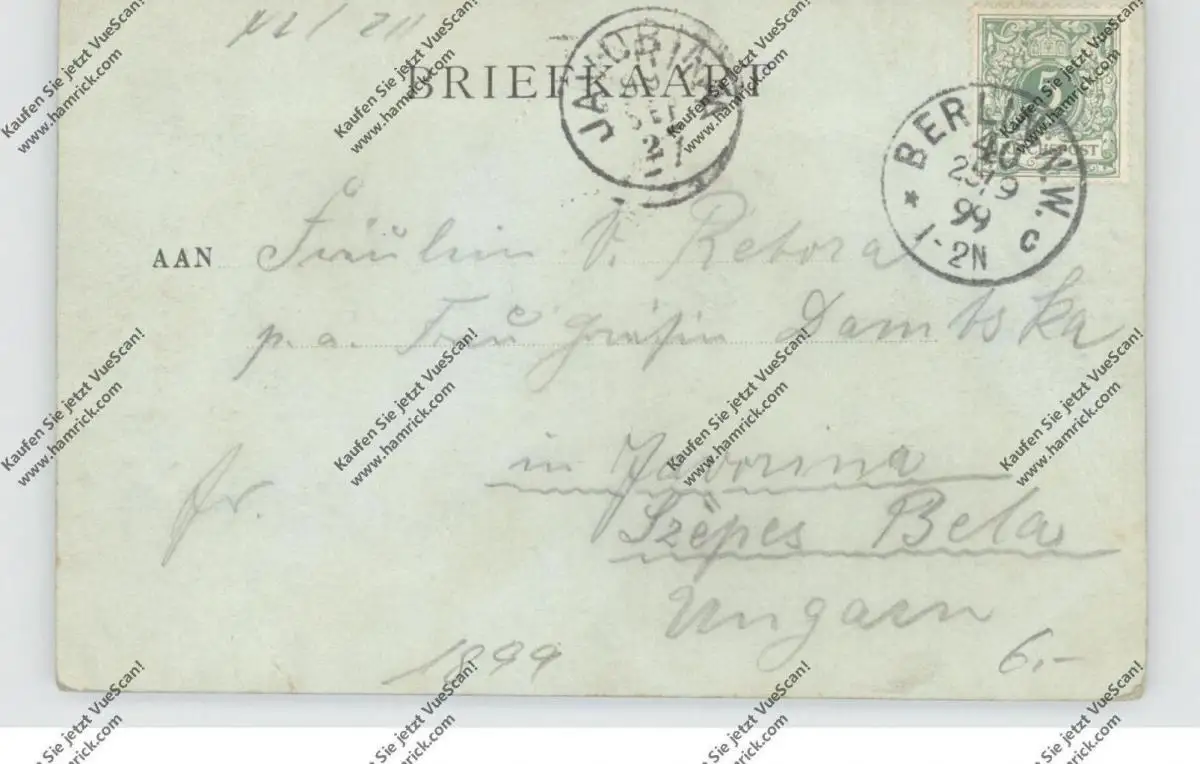 BRIEFKAART
JAVORINA
99
SEP
27
5
REICHSPOST
BERLIN N.W.
40
25/9
99
1-2N
c
AAN Fräulein V. Rebora
p.a. Frau Gräfin Dambska
in Javorina
Szépes Bela
Ungarn
fr.
1899
6.-
Kaufen Sie jetzt VueScan!
www.hamrick.com